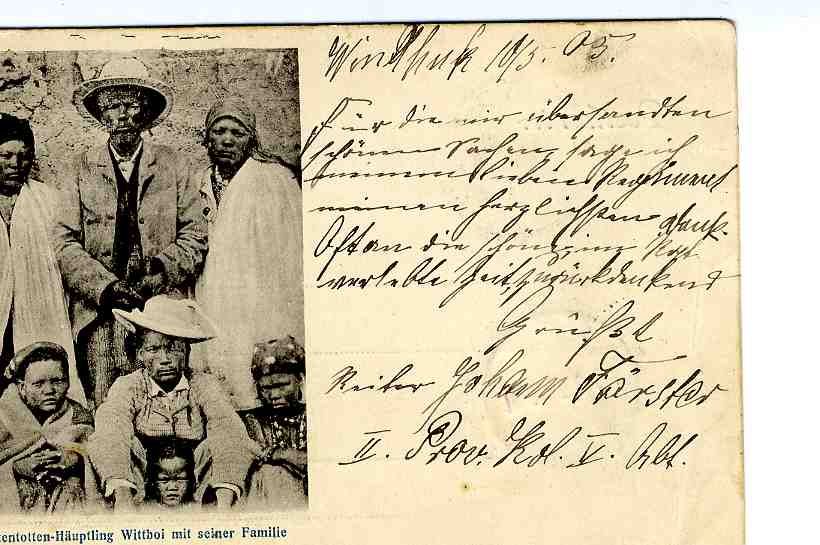 Windhuk 10/5. 05.
Für die mir übersandten
schönen Sachen sage ich
meinem lieben Regiment
meinen herzlichsten Dank.
Oft an die schöne, im Rgt
verlebte Zeit, zurückdenkend
Grüßt
Reiter Johann Förster
II. Prov. Kol. V. Abt.
tentotten-Häuptling Wittboi mit seiner Familie